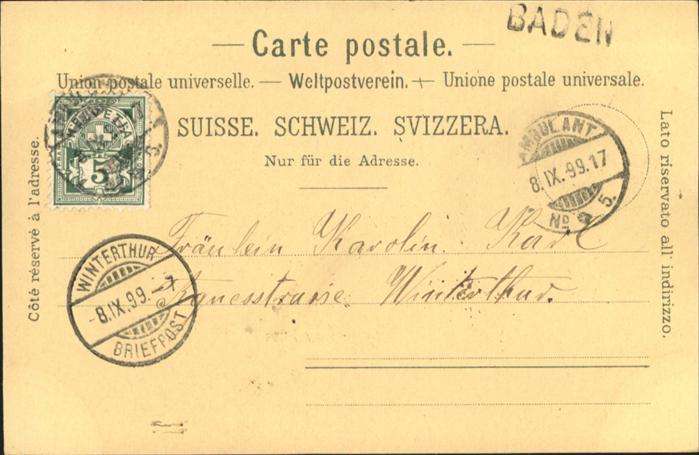 BADEN
— Carte postale. —
Union postale universelle. — Weltpostverein. — Unione postale universale.
SUISSE. SCHWEIZ. SVIZZERA.
Nur für die Adresse.
Côté réservé à l'adresse.
Lato riservato all' indirizzo.
HELVETIA
5
AMBULANT
8.IX.99.17
No
5.
Fräulein Karolin
Agnesstrasse Winterthur.
WINTERTHUR
-8.IX.99.
BRIEFPOST